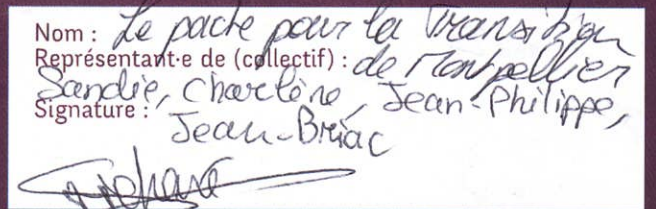 Nom : Le pacte pour la Transition
Représentant·e de (collectif) : de Montpellier
Sandie, Charlène, Jean-Philippe,
Signature : Jean-Briac